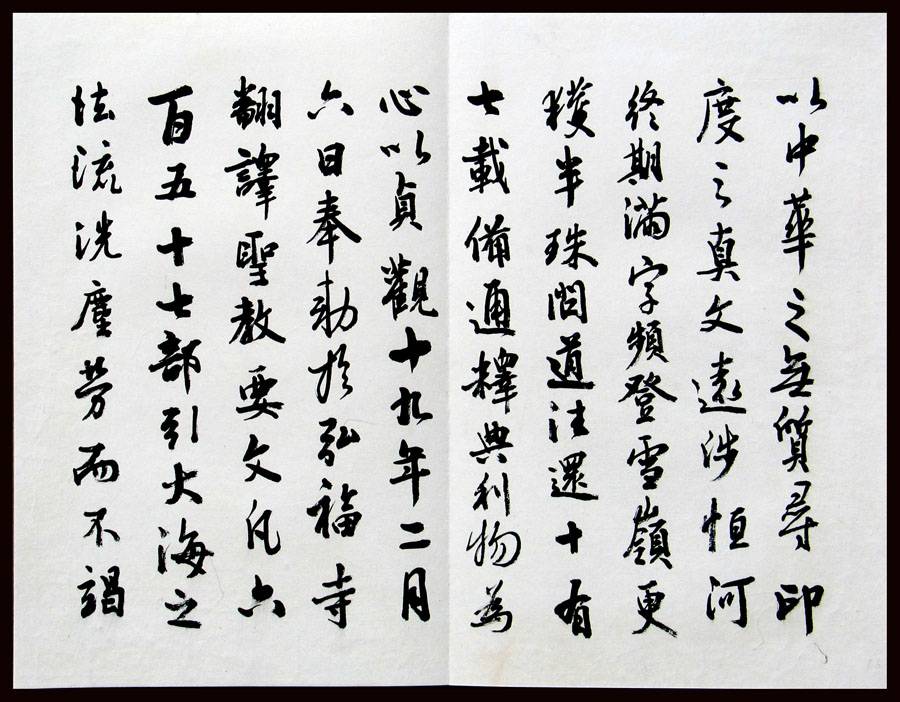 以中華之無質尋印
度之真文遠涉恒河
終期滿字頻登雪嶺更
獲半珠問道法還十有
七載備通釋典利物為
心以貞觀十九年二月
六日奉勅於弘福寺
翻譯聖教要文凡六
百五十七部引大海之
法流洗塵勞而不竭